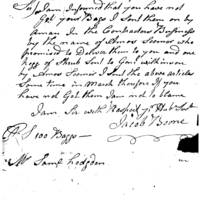 Sir I am Informed that you have not
Got your Bags I Sent them on by
a man In the Contractors Business
by the name of Amos who
promised to deliver them to you and one
hogg of Shrub Sent to Genl wilkinson
by Amos I Sent the above articles
Some time in March therefore If you
have not Got them I am not to blame
I am Sir with Respect yr Hbl Sert
Jacob
PS 100 Baggs —
Mr Saml Hodgdon